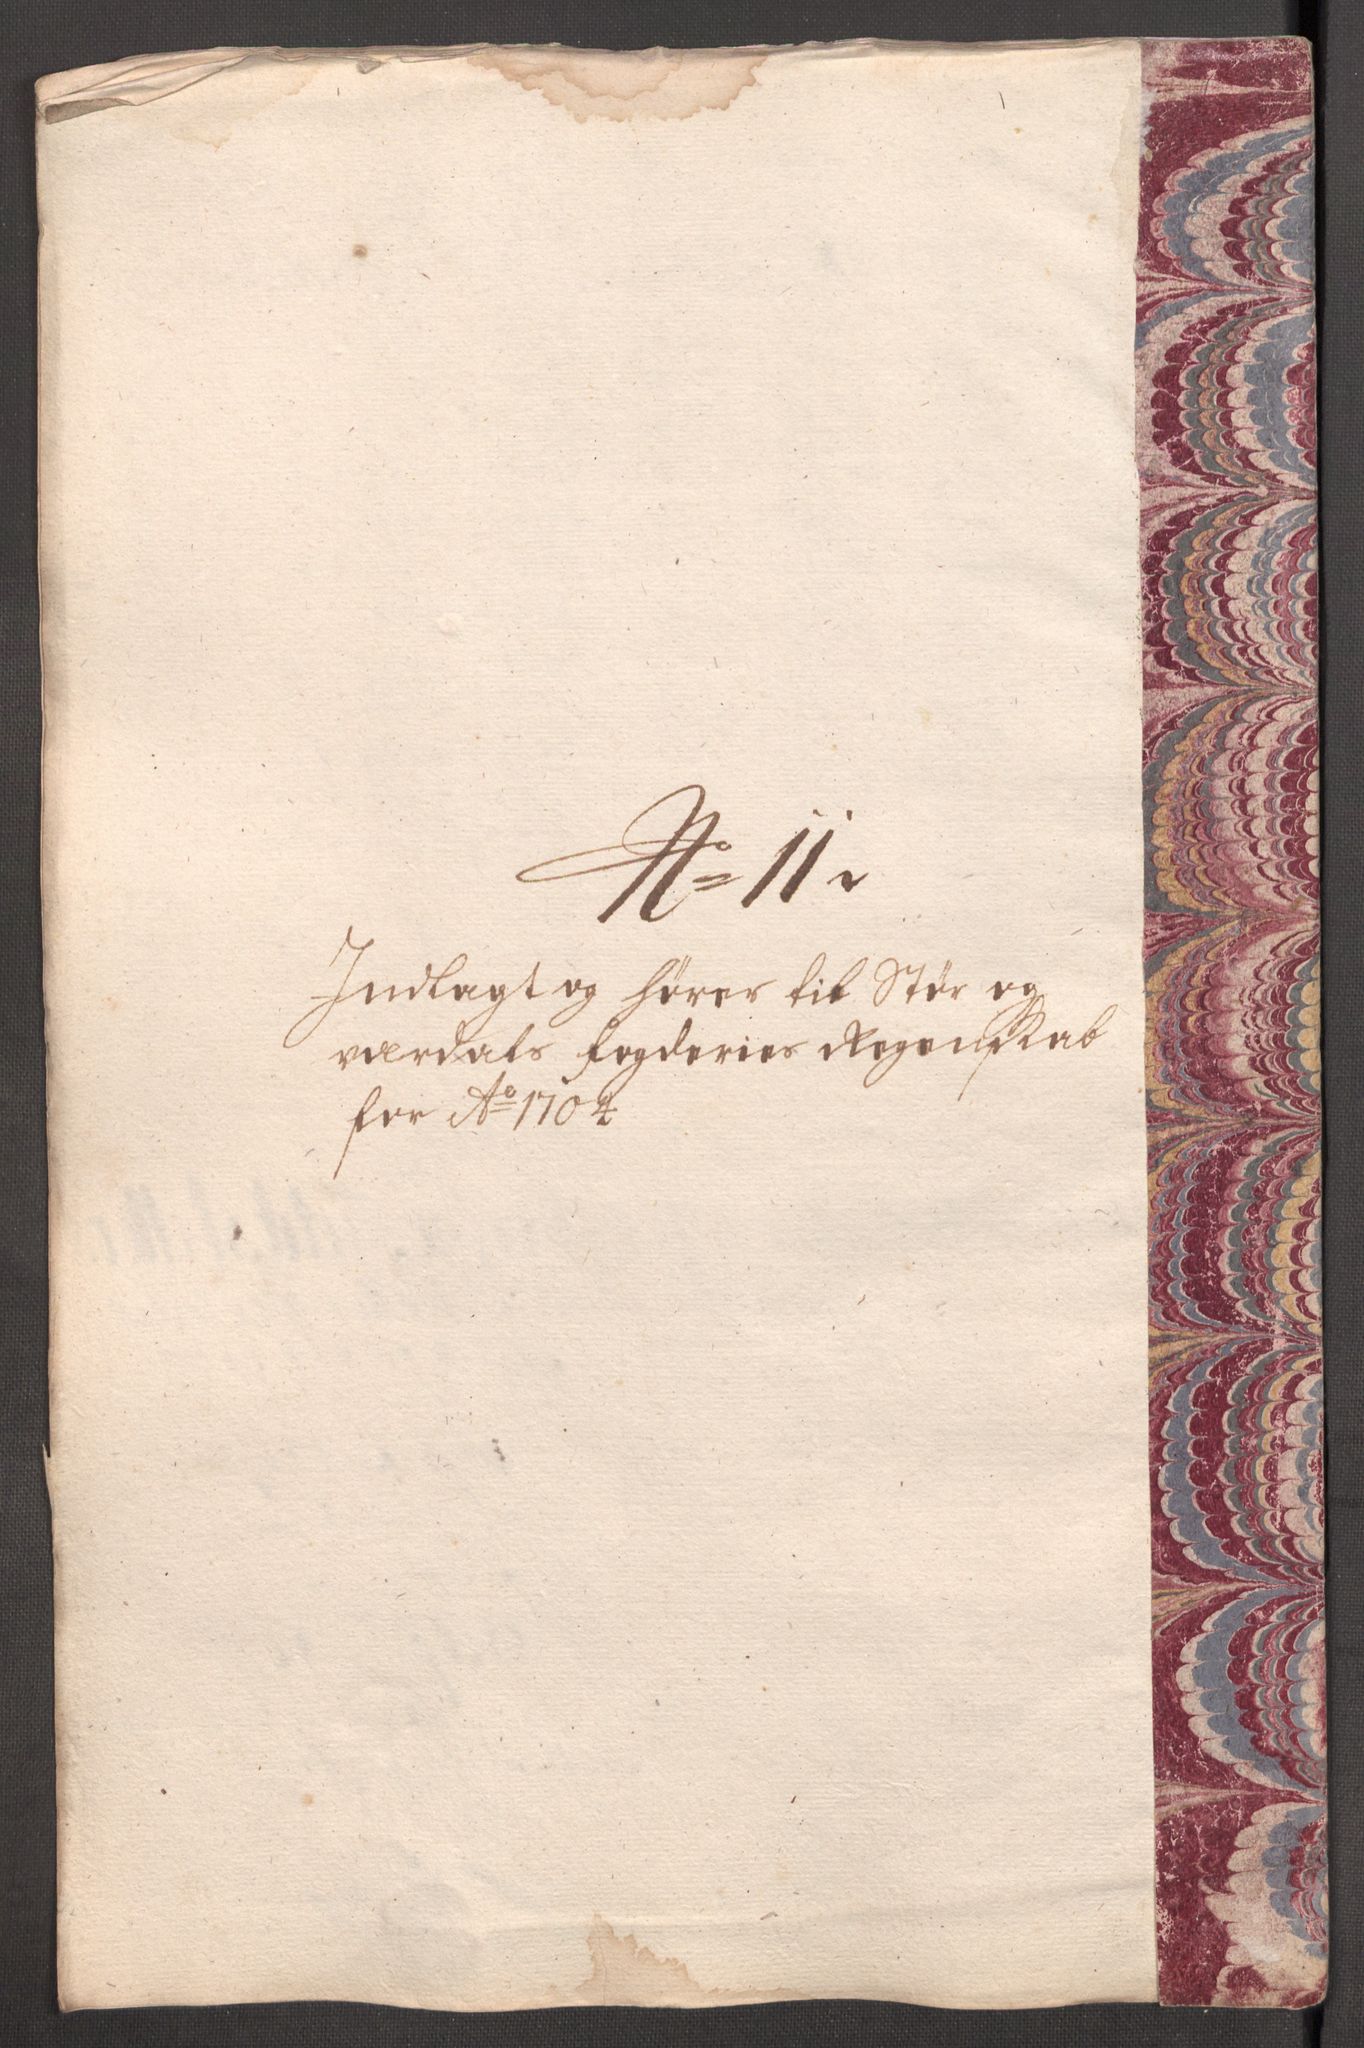 No 11.
Indlagt og hører til Stør og
værdals fogderies Regenskab
for Ao 1704